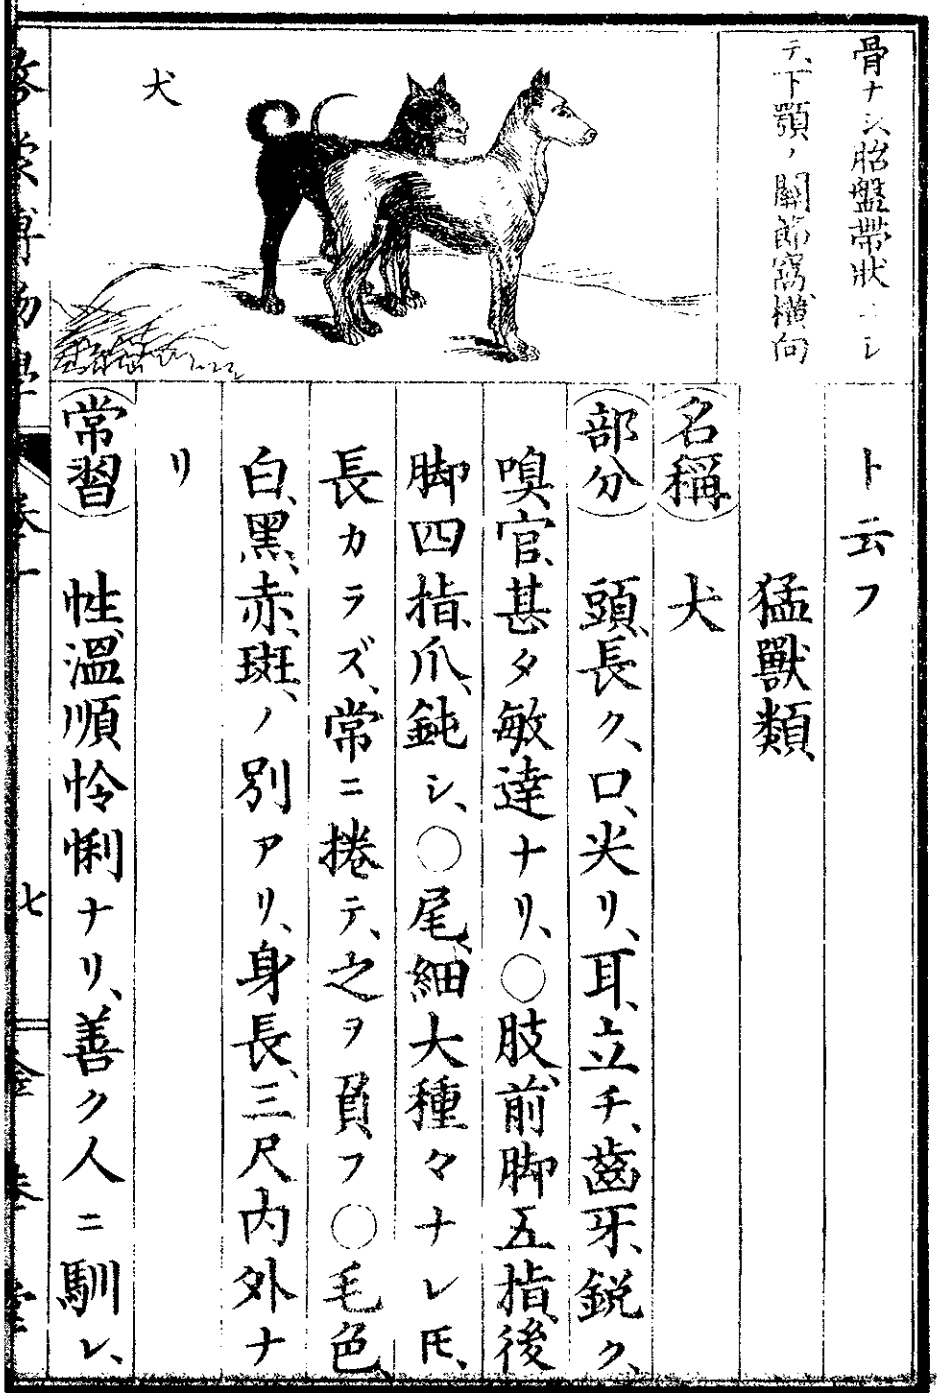 骨ナシ胎盤帶狀ニシ
テ、下顎ノ關節窩橫向
犬
ト云フ
猛獸類
(名稱) 犬
(部分) 頭、長ク、口、尖リ、耳、立チ、齒牙、鋭ク、
嗅官、甚タ敏達ナリ、〇肢、前脚五指、後
脚四指、爪、鈍シ、〇尾、細大種々ナレ𪜈、
長カラズ、常ニ捲テ、之ヲ負フ〇毛色、
白、黑、赤、斑、ノ別アリ、身長、三尺内外ナ
リ
(常習) 性、溫順怜悧ナリ、善ク人ニ馴レ、
博物學
卷一
七